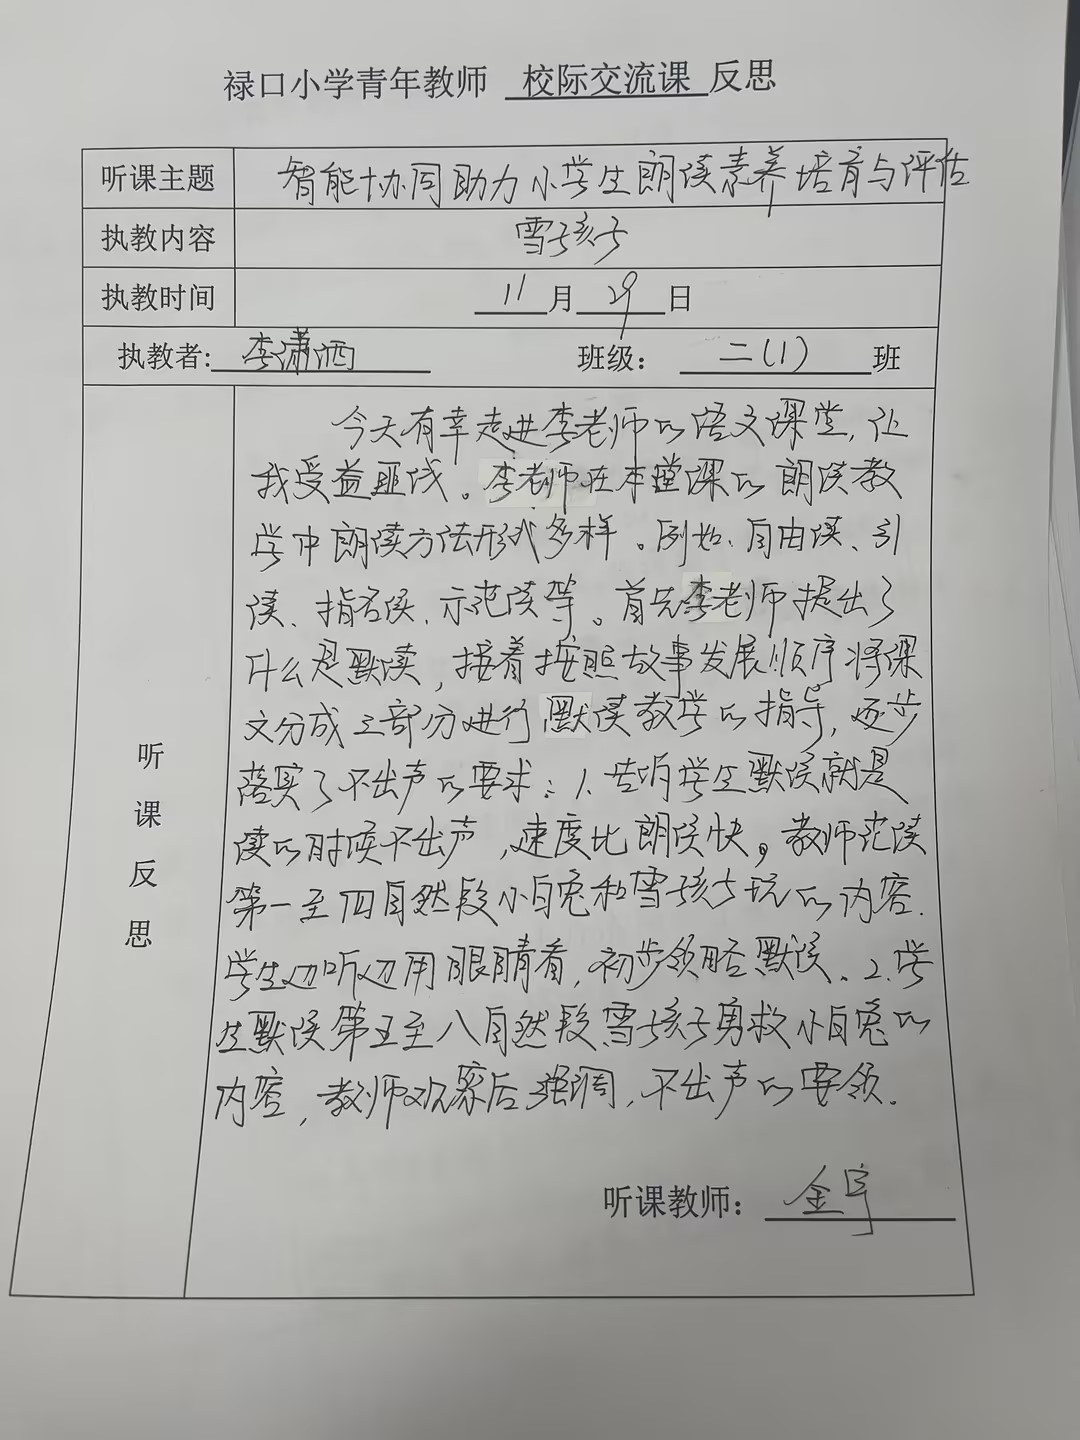 禄口小学青年教师 校际交流课 反思
听课主题 智能协同助力小学生朗读素养培育与评估
执教内容 雪孩子
执教时间 11月29日
执教者: 李潇洒 班级: 二(1) 班
听课反思
今天有幸走进李老师的语文课堂,让
我受益匪浅。李老师在本堂课的朗读教
学中朗读方法形式多样。例如、自由读、引
读、指名读、示范读等。首先李老师提出了
什么是默读,接着按照故事发展顺序将课
文分成三部分进行默读教学的指导,逐步
落实了不出声的要求:1、告诉学生默读就是
读的时候不出声,速度比朗读快。教师范读
第一至四自然段小白兔和雪孩子玩的内容.
学生边听边用眼睛看,初步领略默读、2.学
生默读第五至八自然段雪孩子勇救小白兔的
内容,教师观察后强调,不出声的要领.
听课教师: 金宇